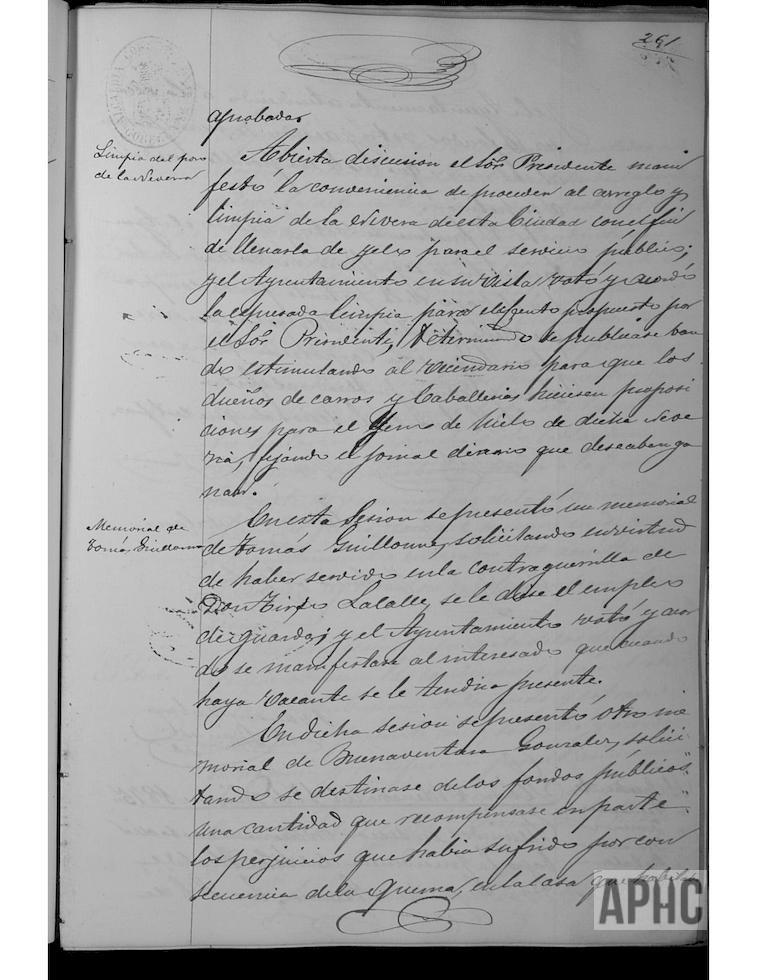 291
aprobadas
Limpia del poso
de la Nevera
Abierta discusion el Sor. Presidente mani
festó la conveniencia de proceder al arreglo y
limpia de la Nevera de esta Ciudad con el fin
de llenarla de yelo para el servicio publico;
y el Ayuntamiento en su vista votó y acordó
la espresada limpia para el efecto propuesto por
el Sor. Presidente, determinando se publicase ban
do estimulando al vecindario para que los
dueños de carros y Caballerias hiciesen proposi
ciones para el de hielo de dicha Neve
ra, fijando el jornal diario que deseaban ga
nar.
Memorial de
Tomás Guillorme
En esta Sesion se presentó un memorial
de Tomás Guillorme, solicitando en virtud
de haber servido en la contraguerrilla de
Don Tirso Lalalle, se le diese el empleo
de guarda; y el Ayuntamiento votó y acor
dó se manifestase al interesado que cuando
haya vacante se le tendria presente.
En dicha sesion se presentó otro me
morial de Buenaventura Gonzalez, solici
tando se destinase de los fondos públicos
una cantidad que recompensase en parte
los perjuicios que habia sufrido por con
secuencia de la quema, en la casa que
APHC